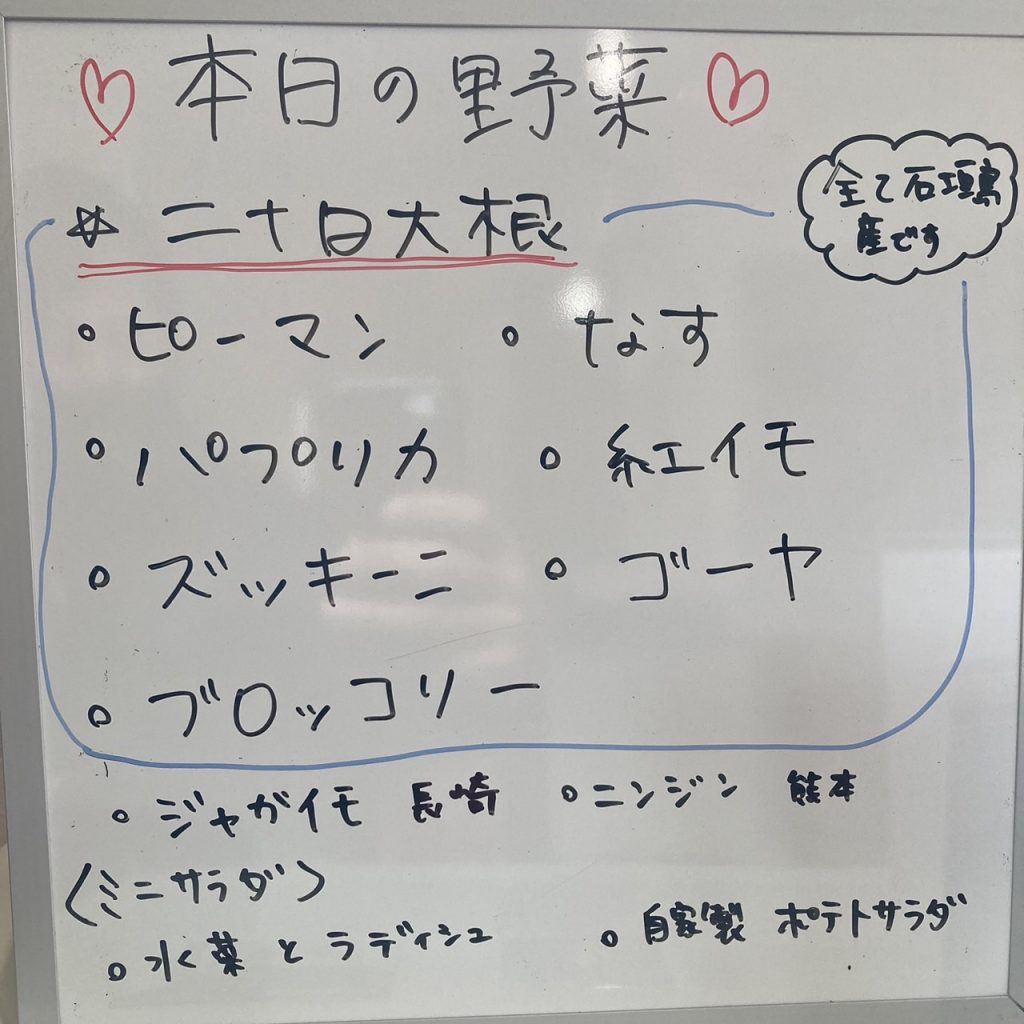 ♡ 本日の野菜 ♡
全て石垣島
産です
☆ 二十日大根
• ピーマン • なす
• パプリカ • 紅イモ
• ズッキーニ • ゴーヤ
• ブロッコリー
• ジャガイモ 長崎 • ニンジン 熊本
〈ミニサラダ〉
• 水菜とラディシュ • 自家製 ポテトサラダ